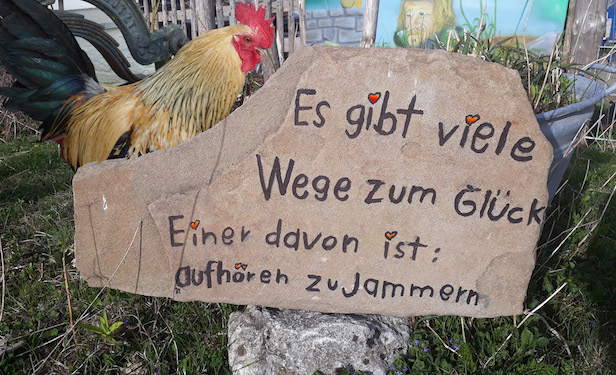 Es gibt viele
Wege zum Glück
Einer davon ist:
aufhören zu Jammern